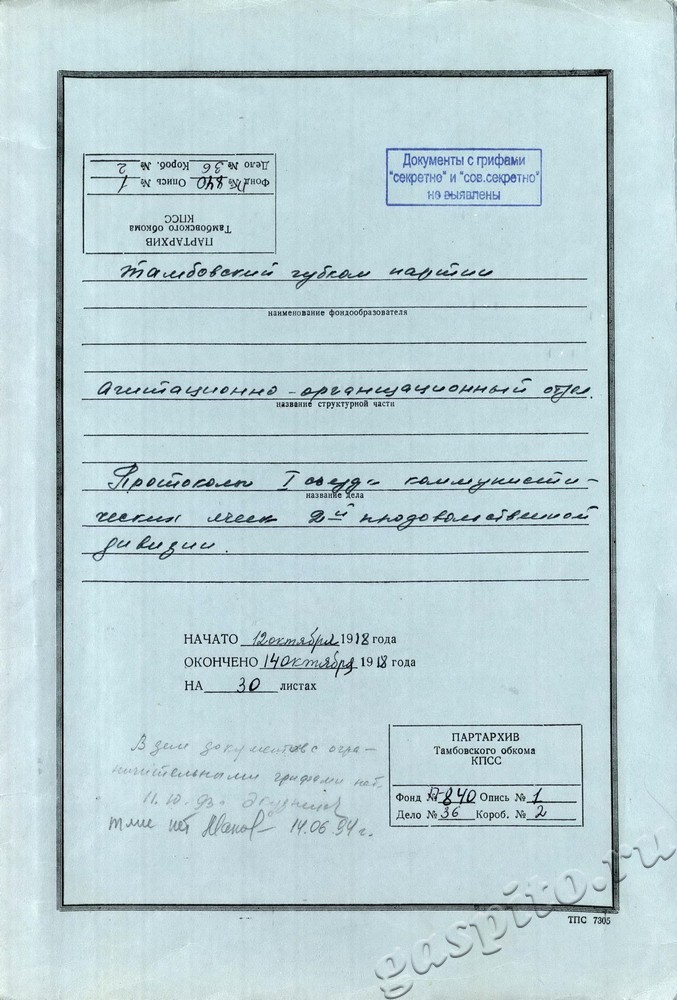 Документы с грифами
"секретно" и "сов.секретно"
не выявлены
ПАРТАРХИВ
Тамбовского обкома
КПСС
Фонд № П-840 Опись № 1
Дело № 36 Короб. № 2
Тамбовский губком партии
наименование фондообразователя
Агитационно-организационный отдел.
название структурной части
Протоколы I съезда коммунисти-
название дела
ческих ячеек 2й продовольственной
дивизии.
НАЧАТО 12 октября 1918 года
ОКОНЧЕНО 14 октября 1918 года
НА 30 листах
В деле документов с огра-
ничительными грифами нет.
11.10.93г.
нет Иванов 14.06.94г.
ПАРТАРХИВ
Тамбовского обкома
КПСС
Фонд № П-840 Опись № 1
Дело № 36 Короб. № 2
ТПС 7305
gaspito.ru